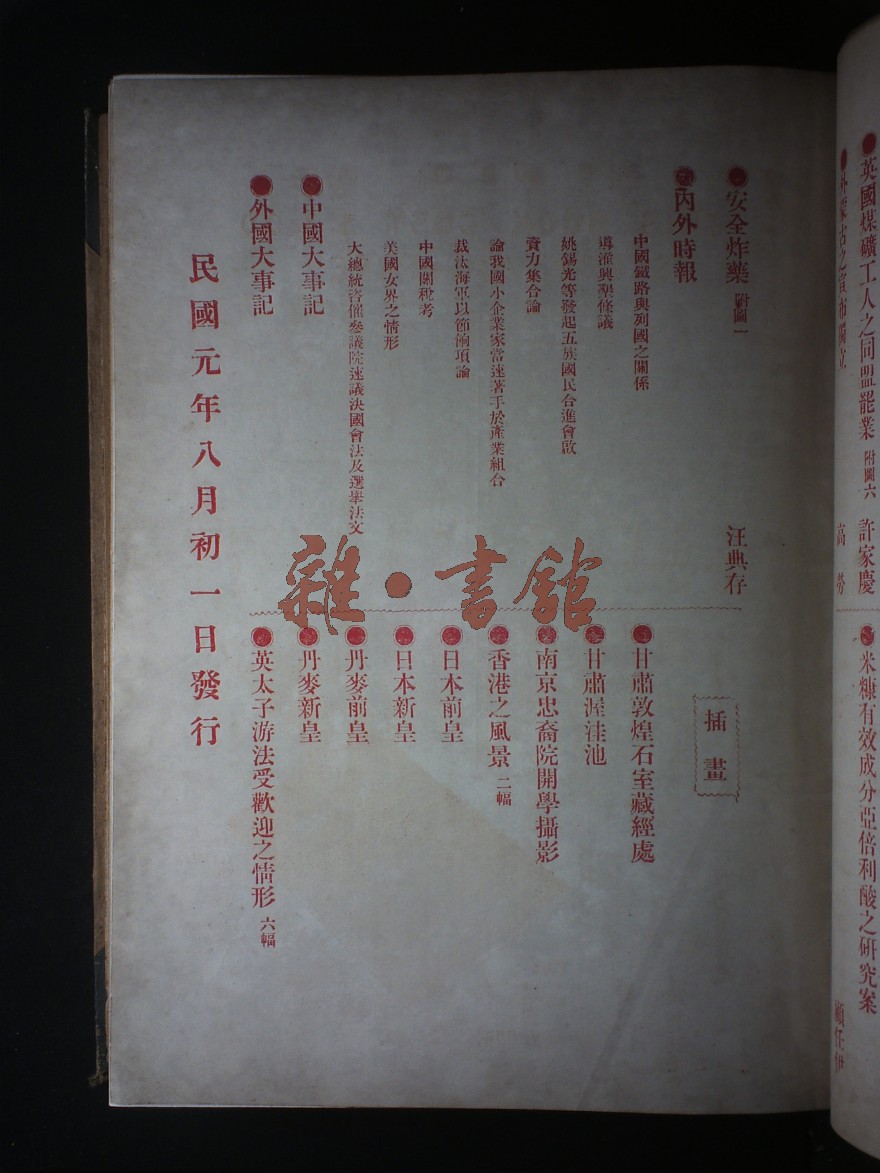 英國煤礦工人之同盟罷業 附圖六 許家慶
外蒙古之宣布獨立 高勞
米糠有效成分亞倍利酸之研究案
安全炸藥 附圖一 汪典存
內外時報
中國鐵路與列國之關係
導淮興墾條議
姚錫光等發起五族國民合進會啟
資力集合論
論我國小企業家當速著手於產業組合
裁汰海軍以節餉項論
中國關稅考
美國女界之情形
大總統咨催參議院速議決國會法及選舉法文
中國大事記
外國大事記
插畫
甘肅敦煌石室藏經處
甘肅渥洼池
南京忠裔院開學攝影
香港之風景 二幅
日本前皇
日本新皇
丹麥前皇
丹麥新皇
英太子游法受歡迎之情形 六幅
民國元年八月初一日發行
雜·書館